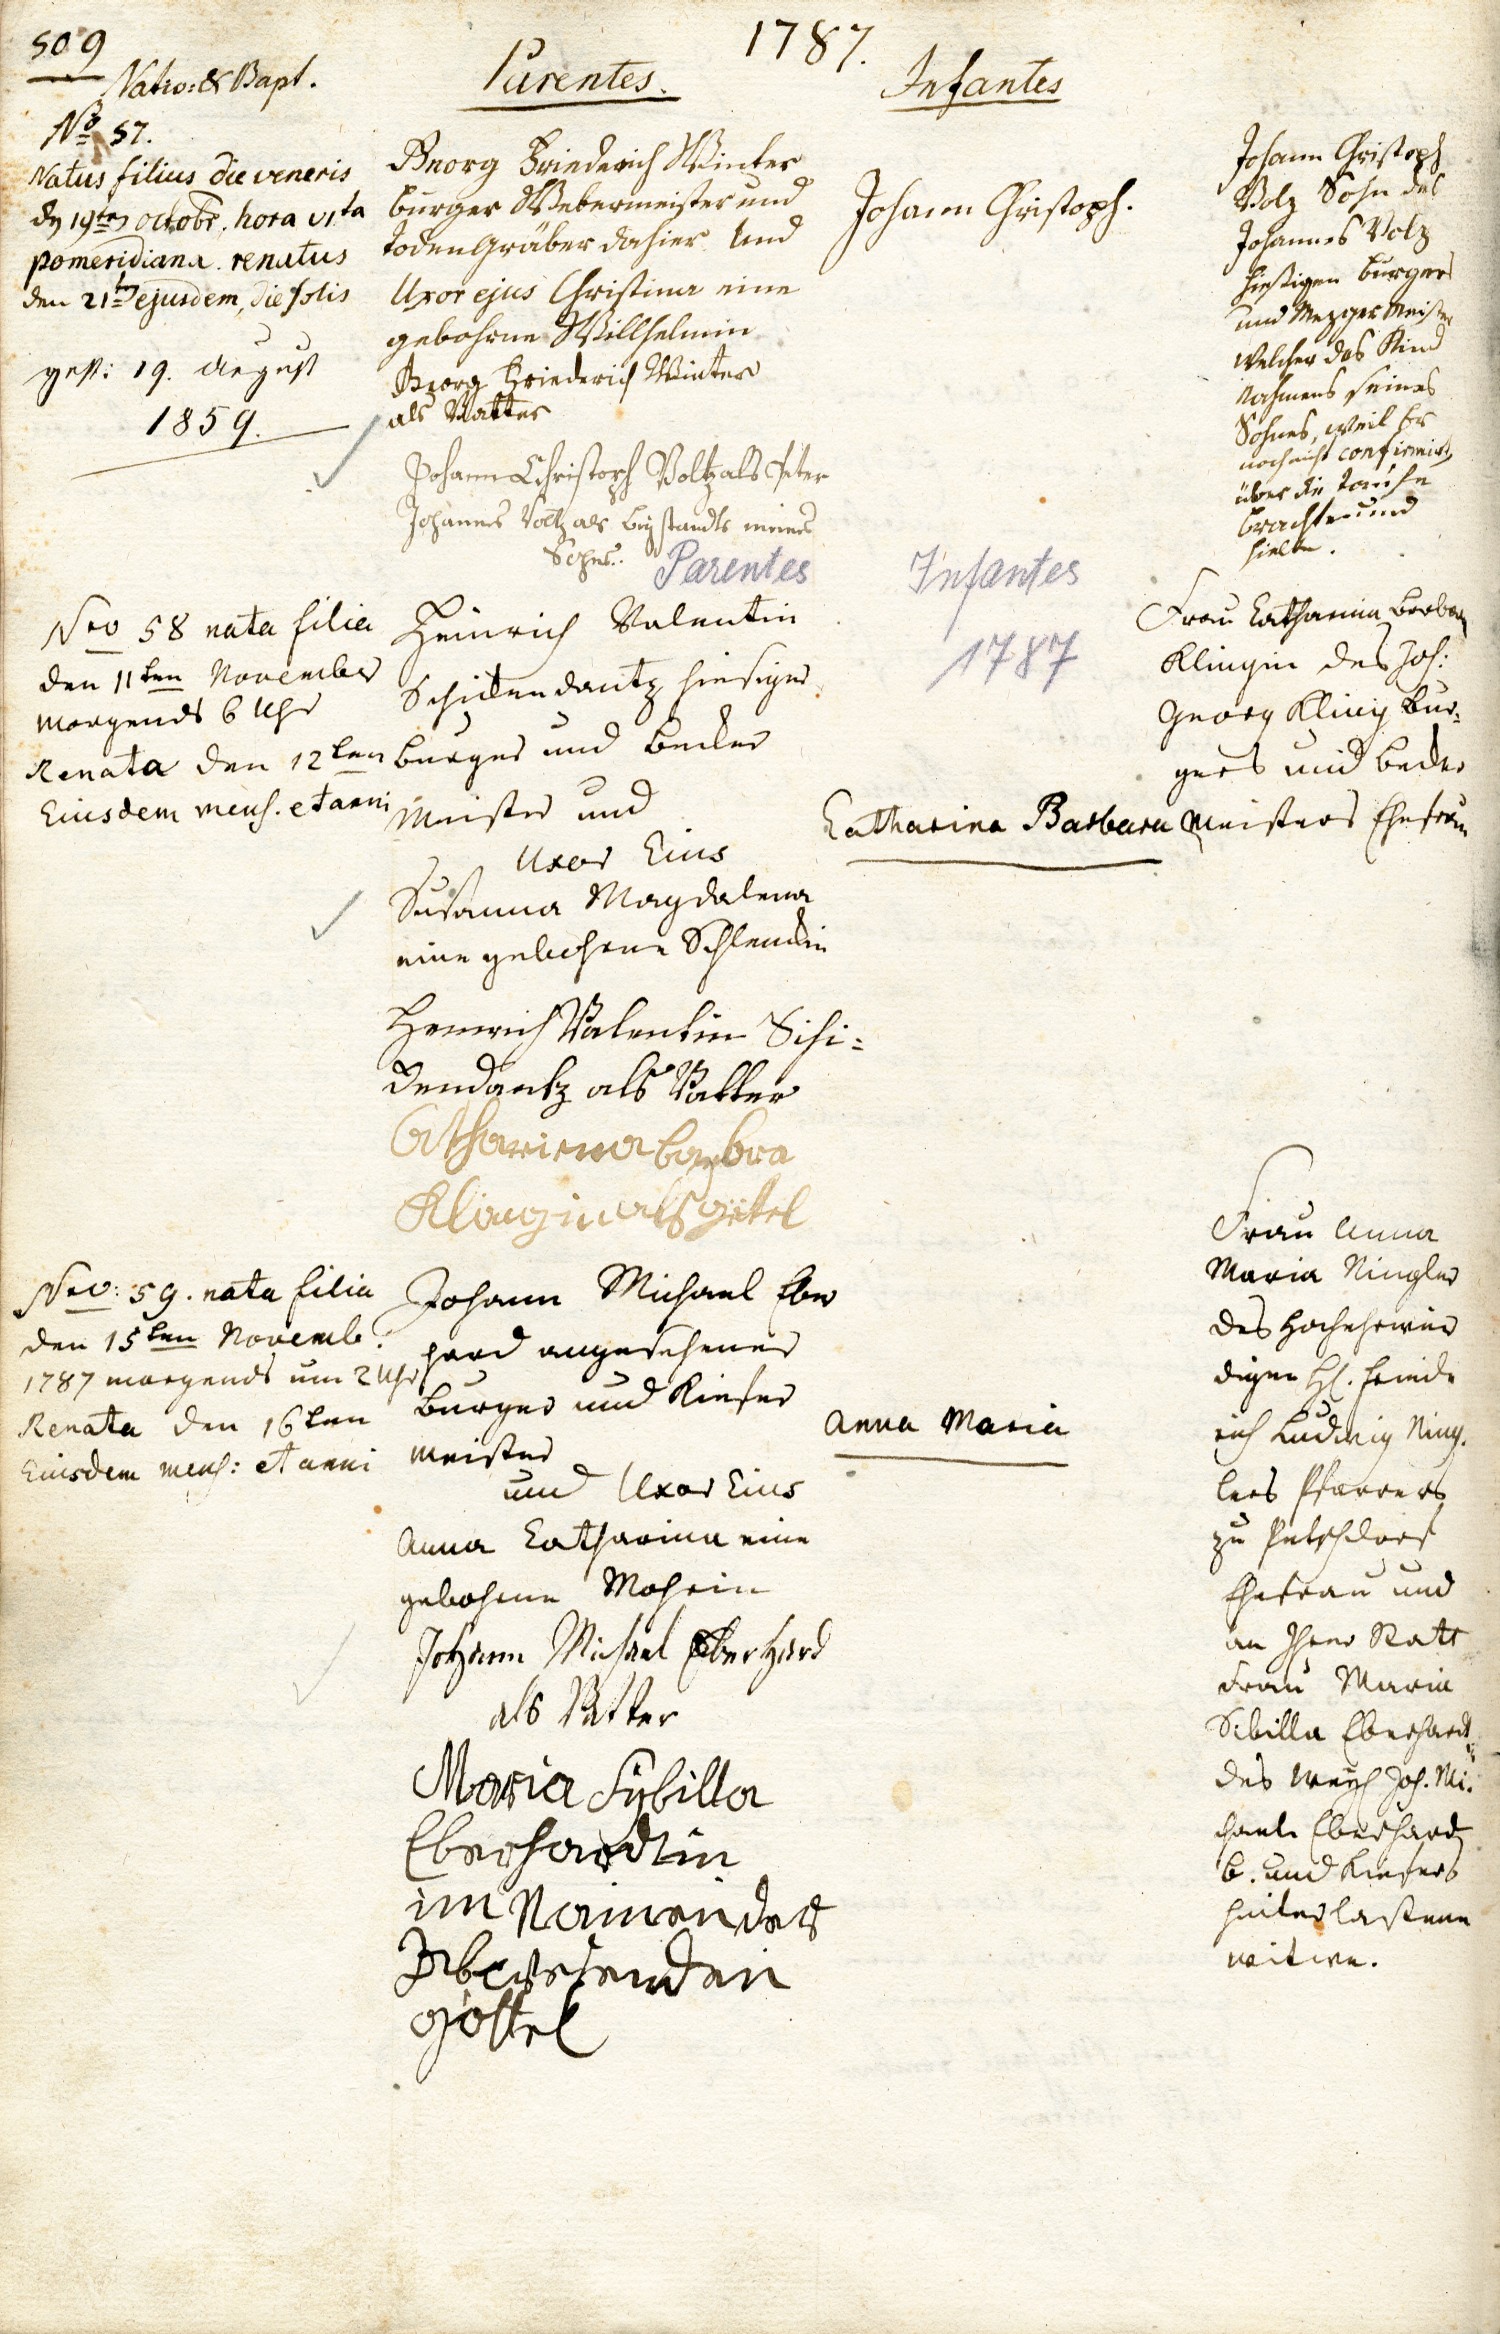 509
1787.
Natio: & Bapt.
Parentes.
Infantes
No 57.
Natus filius die veneris
den 19ten octobr. hora VIta
pomeridiana. renatus
den 21ten ejusdem, die solis
gest: 19. August
1859.
Georg Friederich Winter
burger Webermeister und
todengräber dahier und
Uxor ejus Christina eine
gebohrne Willhelmin
Georg Friederich Winter
als Vatter
Johann Christoph Voltz als Peter
Johannes Voltz als beystandts meines
Sohns.
Johann Christoph.
Johann Christoph
Volz Sohn des
Johannes Volz
hießigen burgers
und Mezger Meister
welcher das Kind
Nahmens seines
Sohnes, weil Er
noch nicht confirmirt,
über die Taufe
brachte und
hielte.
Parentes
Infantes
1787
Nro 58 nata filia
den 11ten November
morgends 6 Uhr
Renata den 12ten
Eiusdem mens. et anni
Heinrich Valentin
Schidendantz hiesiger
burger und becker
Meister und
Uxor Eius
Susanna Magdalena
eine gebohrne Schlendin
Henrich Valentin Schi=
dendantz als Vatter
Catharina barbra
Klingin als götel
Catharina Barbara
Frau Catharina Barbara
Klingin des Joh:
Georg Kling bur=
gers und becker
meisters Ehefrau
Nro: 59. nata filia
den 15ten Novemb:
1787 morgends um 2 Uhr
Renata den 16ten
Eiusdem mens: et anni
Johann Michael Eber
hard angesehener
burger und Kiefer
meister
und Uxor Eius
Anna Catharina eine
gebohrne Mohrin
Johann Michael Eberhard
als Vatter
Maria Sybilla
Eberhardtin
im Namen der
Abwesenden
göttel
Anna Maria
Frau Anna
Maria Ningler
des Hochehrwür
digen H. Friede
rich Ludwig Ning.
lers Pfarrers
zu
Ehefrau und
an Ihrer Statt
Frau Maria
Sibilla Eberhardt
des weyl Joh. Mi:
chael Eberhard
b. und Kiefers
hinterlassene
witwe.